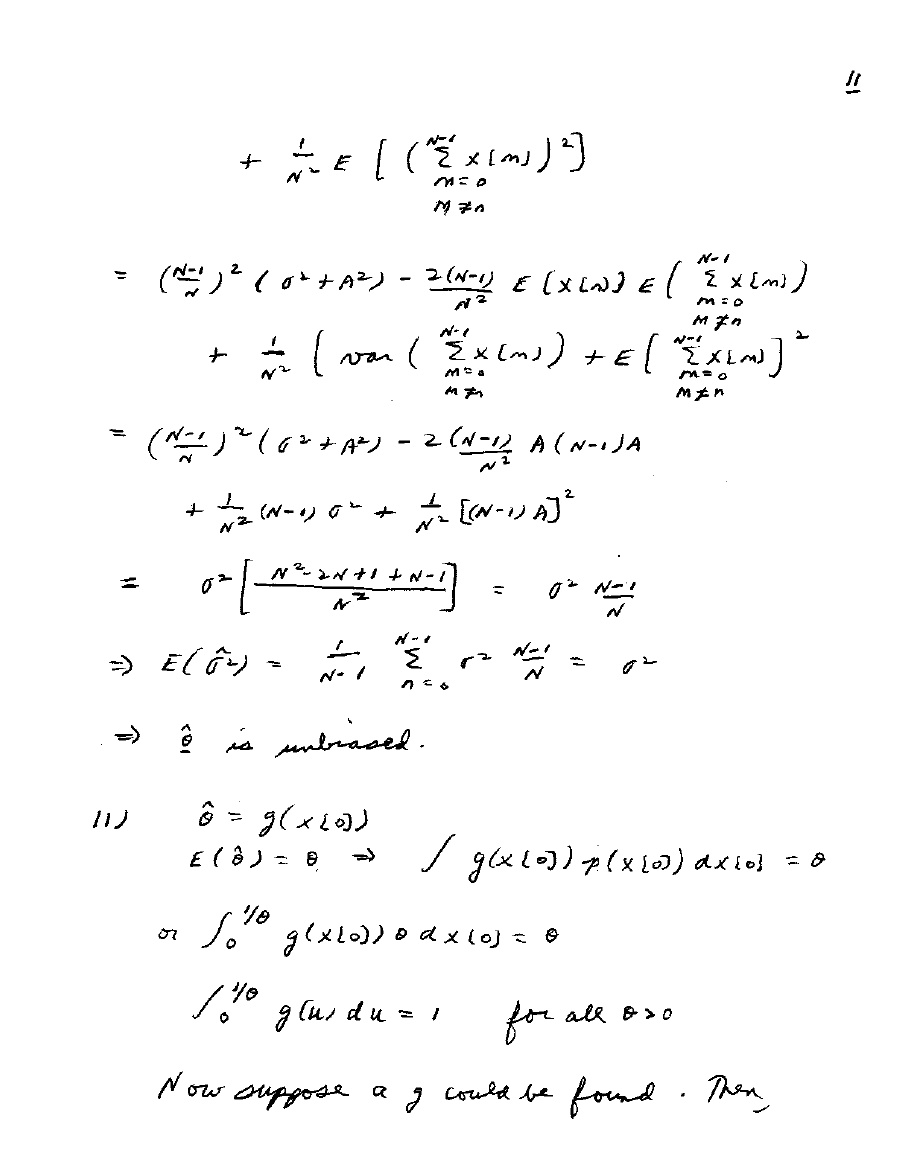 11
+ 1/N² E [ ( Σ_{m=0, m≠n}^{N-1} x[m] )² ]
= (N-1/N)² (σ² + A²) - 2(N-1)/N² E[x[n]] E( Σ_{m=0, m≠n}^{N-1} x[m] )
+ 1/N² [ var ( Σ_{m=0, m≠n}^{N-1} x[m] ) + E[ Σ_{m=0, m≠n}^{N-1} x[m] ]²
= (N-1/N)² (σ² + A²) - 2(N-1)/N² A(N-1)A
+ 1/N² (N-1) σ² + 1/N² [(N-1)A]²
= σ² [ N²-2N+1+N-1 / N² ] = σ² N-1/N
⇒ E(σ̂²) = 1/N-1 Σ_{n=0}^{N-1} σ² N-1/N = σ²
⇒ θ̂ is unbiased.
11) θ̂ = g(x[0])
E(θ̂) = θ ⇒ ∫ g(x[0]) p(x[0]) dx[0] = θ
or ∫_0^{1/θ} g(x[0]) θ dx[0] = θ
∫_0^{1/θ} g(u) du = 1 for all θ>0
Now suppose a g could be found. Then,